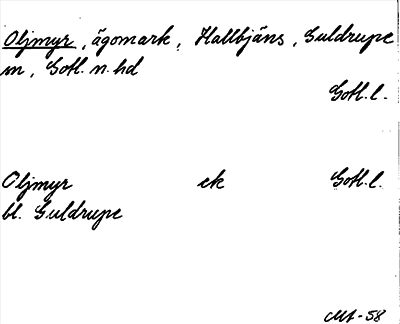 Oljmyr, ägomark, Hallbjäns, Guldrupe
sn, Gotl. n. hd
Gotl. l.
Oljmyr ek Gotl. l.
bl. Guldrupe
MA-58